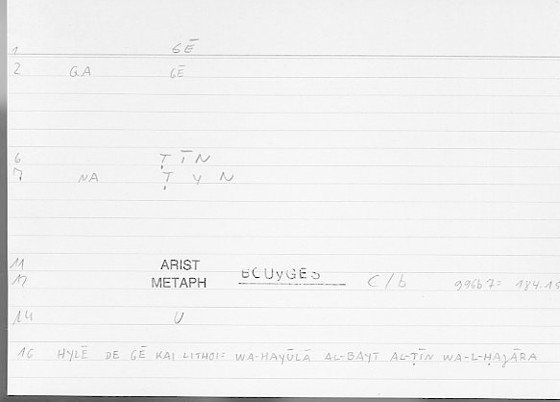 1 GĒ
2 GA GĒ
6 ṬĪN
7 NA ṬYN
11 ARIST
12 METAPH BOUYGES C/b 996b7= 184.15
14 U
16 HYLĒ DE GĒ KAI LITHOI= WA-HAYŪLĀ AL-BAYT AL-ṬĪN WA-L-ḤAJĀRA